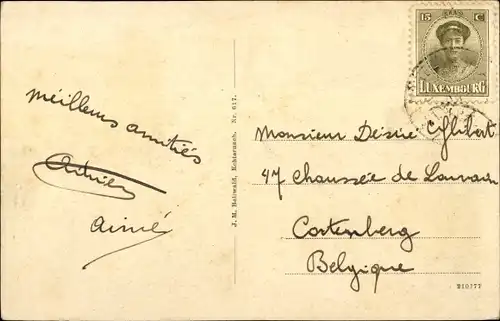 15 C
LUXEMBOURG
meilleurs amitiés
Adrien
aimé
J. M. Bellwald, Echternach. Nr. 617.
Monsieur Désiré Ghlibert
47 chaussée de Louvain
Cortenberg
Belgique
210777